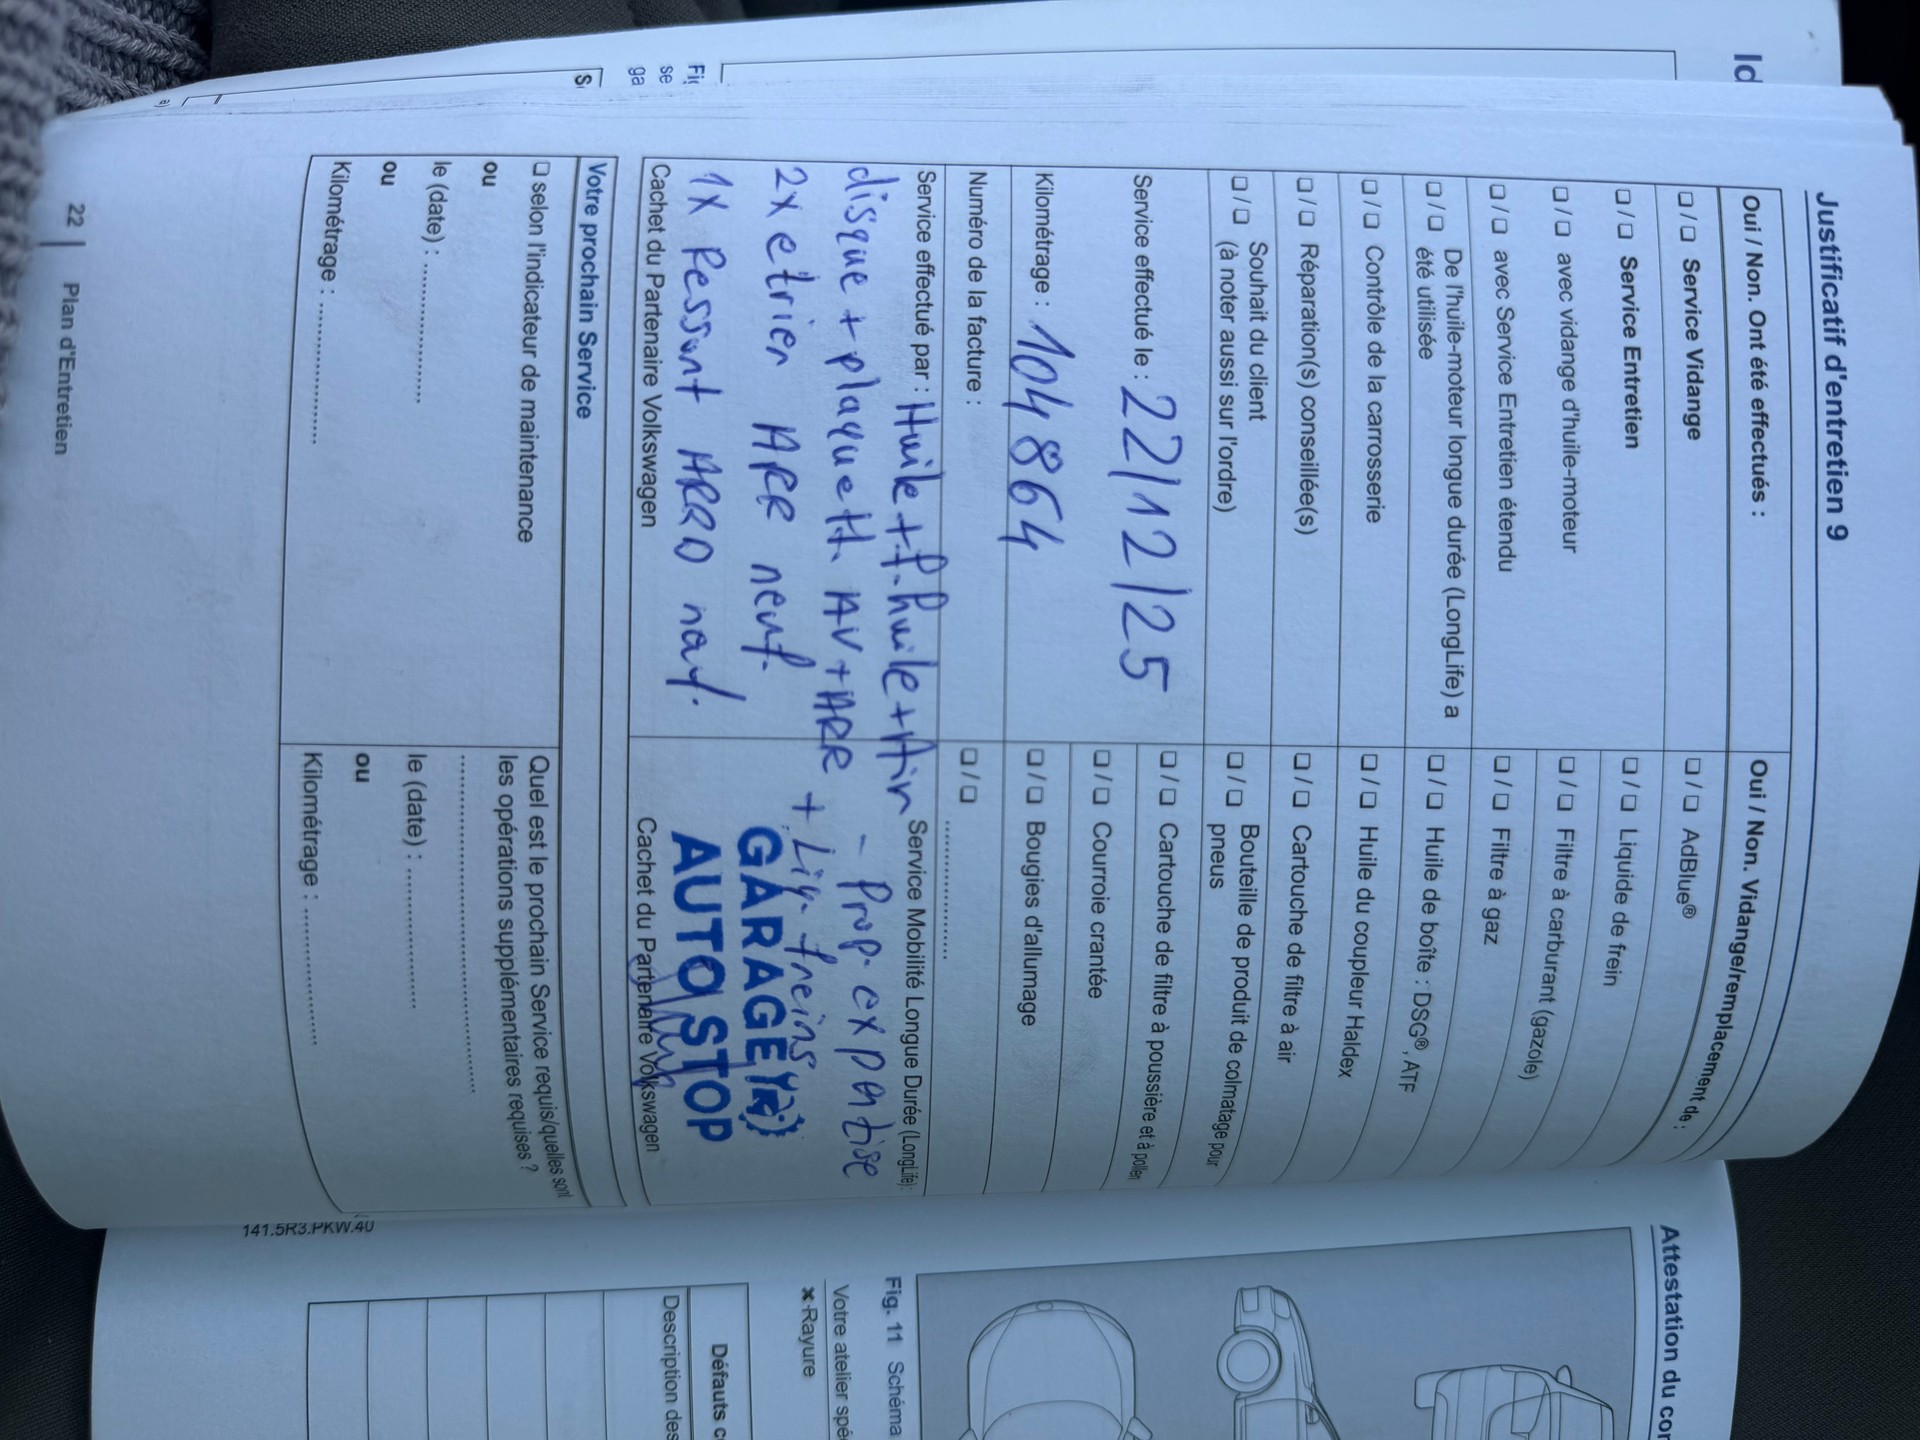 Justificatif d'entretien 9
Oui / Non. Ont été effectués :
❏ / ❏ Service Vidange
❏ / ❏ Service Entretien
❏ / ❏ avec vidange d'huile-moteur
❏ / ❏ avec Service Entretien étendu
❏ / ❏ De l'huile-moteur longue durée (LongLife) a
été utilisée
❏ / ❏ Contrôle de la carrosserie
❏ / ❏ Réparation(s) conseillée(s)
❏ / ❏ Souhait du client
(à noter aussi sur l'ordre)
Service effectué le : 22/12/25
Kilométrage : 104 864
Numéro de la facture :
Oui / Non. Vidange/remplacement de :
❏ / ❏ AdBlue®
❏ / ❏ Liquide de frein
❏ / ❏ Filtre à carburant (gazole)
❏ / ❏ Filtre à gaz
❏ / ❏ Huile de boîte : DSG®, ATF
❏ / ❏ Huile du coupleur Haldex
❏ / ❏ Cartouche de filtre à air
❏ / ❏ Bouteille de produit de colmatage pour
pneus
❏ / ❏ Cartouche de filtre à poussière et à pollen
❏ / ❏ Courroie crantée
❏ / ❏ Bougies d'allumage
❏ / ❏ ....................
Service effectué par : Huile + f.huile + Air
Service Mobilité Longue Durée (LongLife) :
disque + plaquett. AV + ARR - Prop. expantise
2x etrier ARR neuf. + Liq. freins
1x Ressort ARRD neuf.
GARAGE
AUTO STOP
Cachet du Partenaire Volkswagen
Cachet du Partenaire Volkswagen
Votre prochain Service
❏ selon l'indicateur de maintenance
ou
le (date) : ....................
ou
Kilométrage : ....................
Quel est le prochain Service requis/quelles sont
les opérations supplémentaires requises ?
....................
le (date) : ....................
ou
Kilométrage : ....................
22 | Plan d'Entretien
141.5R3.PKW.40
Attestation du cor
Fig. 11 Schéma
Votre atelier spé
x-Rayure
Défauts c
Description des
Id
Fi
se
ga
S